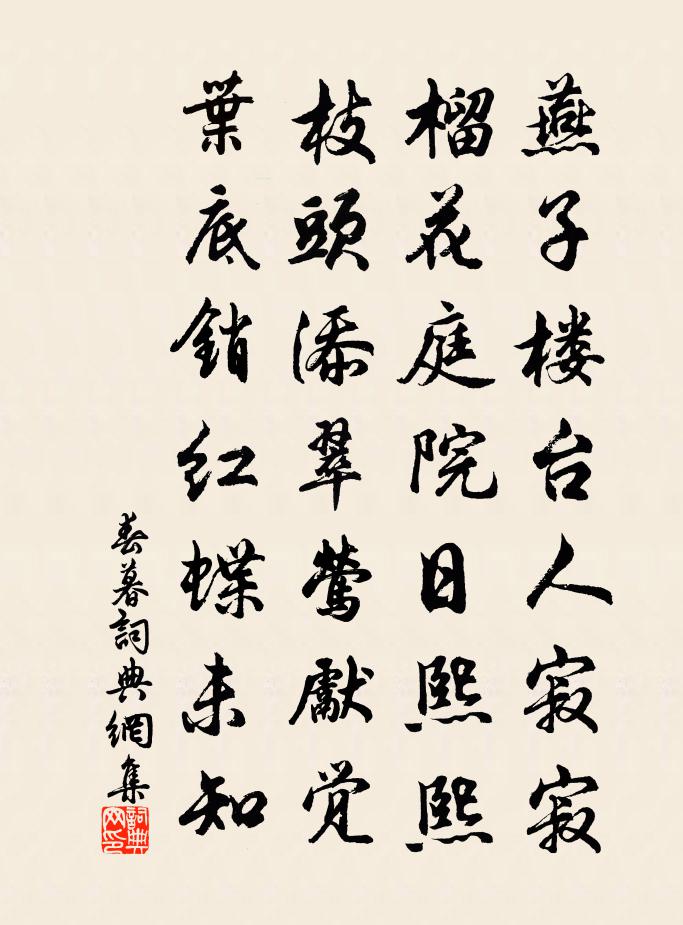 燕子楼台人寂寂
榴花庭院日熙熙
枝頭添翠鶯獻覚
葉底銷红蝶未知
春暮詞典網集
詞典网印